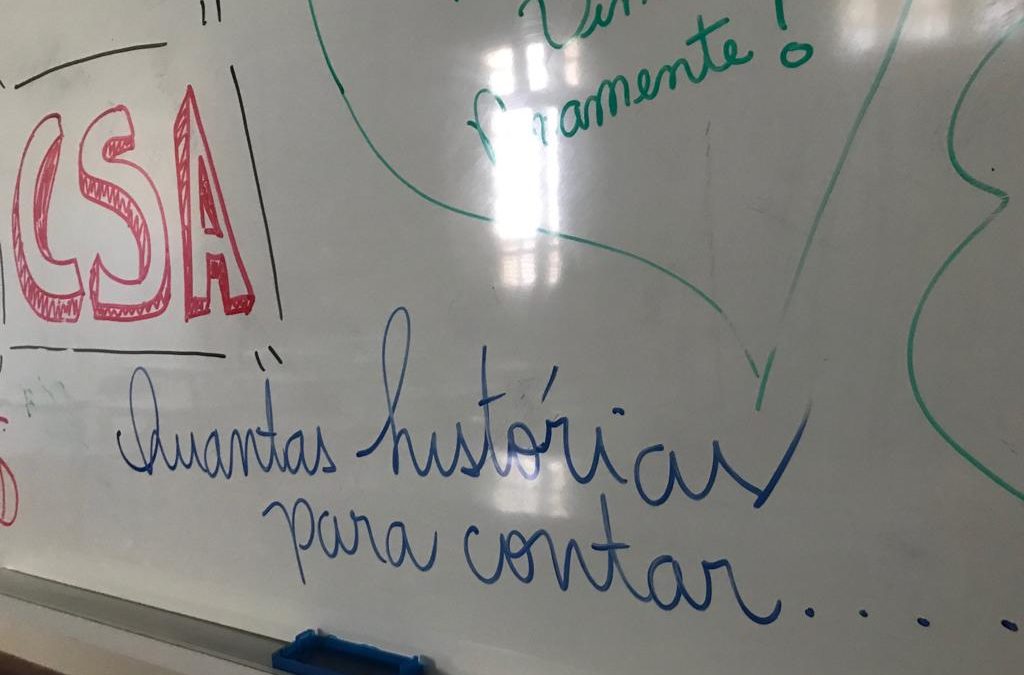 famente!
CSA
Quantas histórias
para contar.....